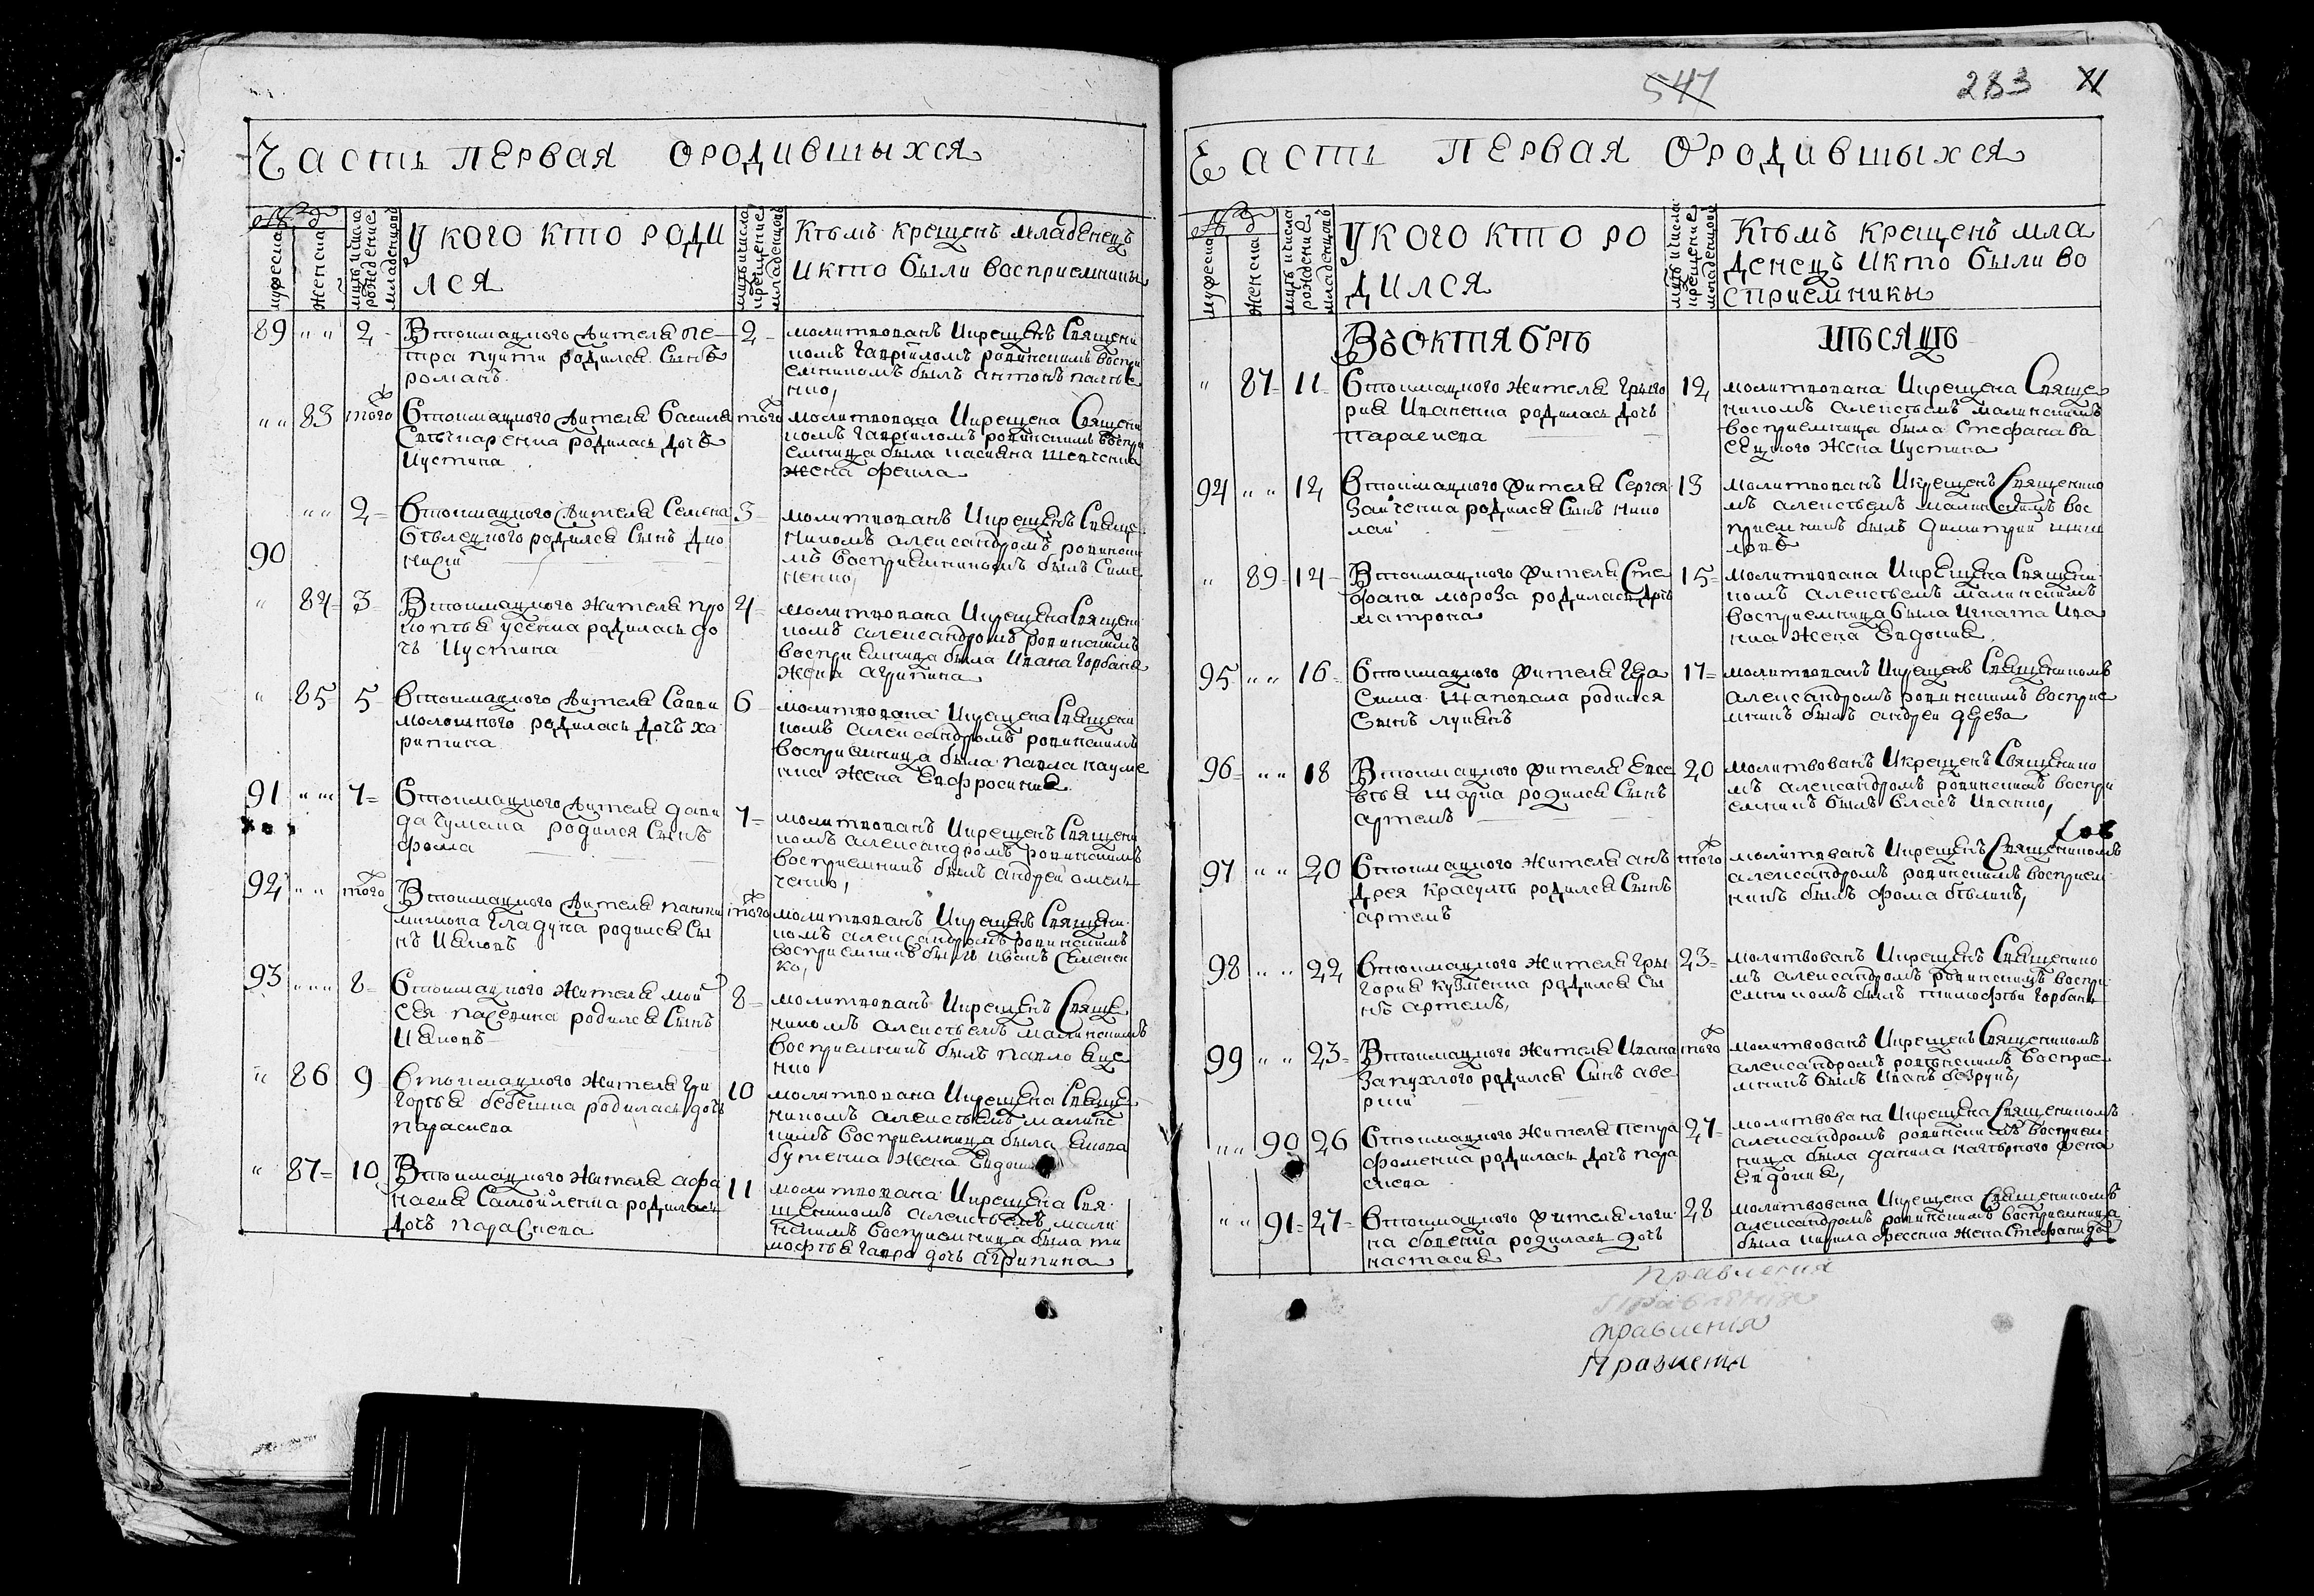 Часть первая ородившыхся
№д
мужеска
женска
мцъ ичисла рождение младенцовъ
У кого кто роди
лся
мцъ ичисла крещение младенцовъ
Кѣмъ крещенъ младенецъ
икто были восприемники
89 „ „ 2
Втоимацкого жителя пе
тра пути родился сынъ
романъ
2
молитвованъ икрещенъ священи
комъ гавріиломъ ровинскимъ воспри
емникомъ былъ антонъ палѣе
нко,
„ „ 83 того
Втоимацкого жителя василя
родилась дочъ
иустина
того
молитвована икрещена священи
комъ гавріиломъ ровинскимъ воспри
емница была касияна шевченка
жена фекла
90 „ „ 2
Втоимацкого жителя семена
бѣлецкого родился сынъ дио
нисій
3
молитвованъ икрещенъ свяще
никомъ александромъ ровински
мъ восприемникомъ былъ симе
ненко,
„ 84 3
Втоимацкого жителя про
копѣя усенка родилась до
чъ иустина
4
молитвована икрещена священи
комъ александромъ ровинскимъ
восприемница была ивана горбаня
жена агрипина
„ 85 5
Втоимацкого жителя савки
молошного родилась дочъ ха
ритина
6
молитвована икрещена священи
комъ александромъ ровинскимъ
восприемница была павла науме
нка жена евфросиния
91 „ „ 7
Втоимацкого жителя дави
да чумака родился сынъ
фома
7
молитвованъ икрещенъ священи
комъ александромъ ровинскимъ
восприемникъ былъ андрей омель
ченко,
92 „ „ того
Втоимацкого жителя
гладуна родился сы
нъ иаковъ
того
молитвованъ икрещенъ священи
комъ александромъ ровинскимъ
восприемникъ былъ иванъ семенен
ко,
93 „ „ 8
Втоимацкого жителя мой
сея пасечника родился сынъ
иаковъ
8
молитвованъ икрещенъ свяще
никомъ алексѣемъ малинскимъ
восприемникъ былъ павло яце
нко
„ 86 9
Втоимацкого жителя гри
горѣя бебешка родилась дочъ
параскева
10
молитвована икрещена свяще
никомъ алексѣемъ малинс
кимъ восприемница была якова
бутенка жена евдокия
„ 87 10
Втоимацкого жителя афа
насия самойленка родилась
дочъ параскева
11
молитвована икрещена свя
щеникомъ алексѣемъ мали
нскимъ восприемница была ти
мофѣя гавра дочъ агрипина
547 283
Часть первая ородившыхся
№д
мужеска
женска
мцъ ичисла рождение младенцовъ
У кого кто ро
дился
мцъ ичисла крещение младенцовъ
Кѣмъ крещенъ мла
денецъ икто были во
сприемники
Въ октябрѣ мѣсяцѣ
„ 87 11
Втоимацкого жителя григо
рия иваненка родилась дочъ
параскева
12
молитвована икрещена свяще
никомъ алексѣемъ малинскимъ
восприемница была стефана ва
сецкого жена иустина
94 „ „ 12
Втоимацкого жителя сергея
заиченка родился сынъ нико
лай
13
молитвованъ икрещенъ священико
мъ алексѣемъ малинскимъ вос
приемникъ былъ димитрий
„ 89 14
Втоимацкого жителя сте
фана мороза родилась дочъ
матрона
15
молитвована икрещена священи
комъ алексѣемъ малинскимъ
восприемница была игната ива
нка жена евдокия
95 „ „ 16
Втоимацкого жителя гера
сима шаповала родился
сынъ лукиянъ
17
молитвованъ икрещенъ священикомъ
александромъ ровинскимъ восприе
мникъ былъ андреи дереза
96 „ „ 18
Втоимацкого жителя евсе
вѣя шарпа родился сынъ
артемъ
20
молитвованъ икрещенъ священико
мъ александромъ ровинскимъ воспри
емникъ былъ власъ иванко,
97 „ „ 20
Втоимацкого жителя анъ
дрея красулѣ родился сынъ
артемъ
того
молитвованъ икрещенъ священикомъ
александромъ ровинскимъ восприем
никъ былъ фома бѣликъ,
98 „ „ 22
Втоимацкого жителя гры
гория кузменка родился сы
нъ артемъ,
23
молитвованъ икрещенъ священико
мъ александромъ ровинскимъ воспри
емникомъ былъ тимофѣй горбань
99 „ „ 23
Втоимацкого жителя ивана
запухлого родился сынъ аве
ркий
того
молитвованъ икрещенъ священикомъ
александромъ ровинскимъ восприе
мникъ былъ иванъ безрукъ,
„ „ 90 26
Втоимацкого жителя петра
фоменка родилась дочъ пара
скева
27
молитвована икрещена священикомъ
александромъ ровинскимъ восприем
ница была данила нагорного жена
евдокия,
„ „ 91 27
Втоимацкого жителя логи
на бовенка родилась дочъ
настасия
28
молитвована икрещена священикомъ
александромъ ровинскимъ восприемница
была кирила овсеенка жена стефанида
Правления
Правления
правления
Правления